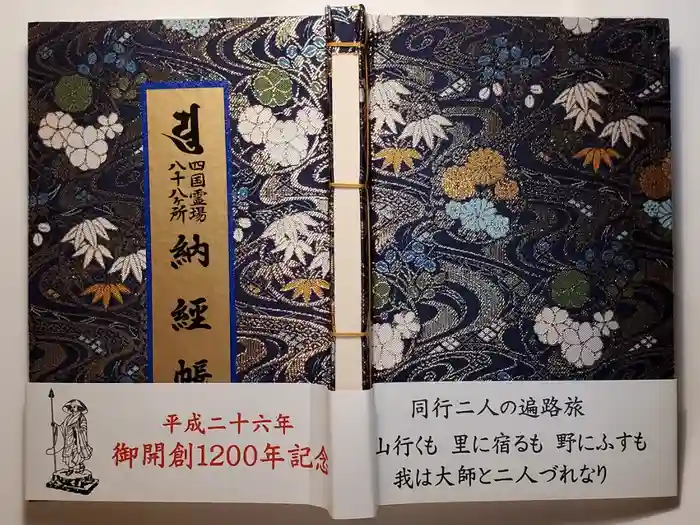 四国霊場
八十八ヶ所
納経帳
平成二十六年
御開創1200年記念
同行二人の遍路旅
山行くも 里に宿るも 野にふすも
我は大師と二人づれなり